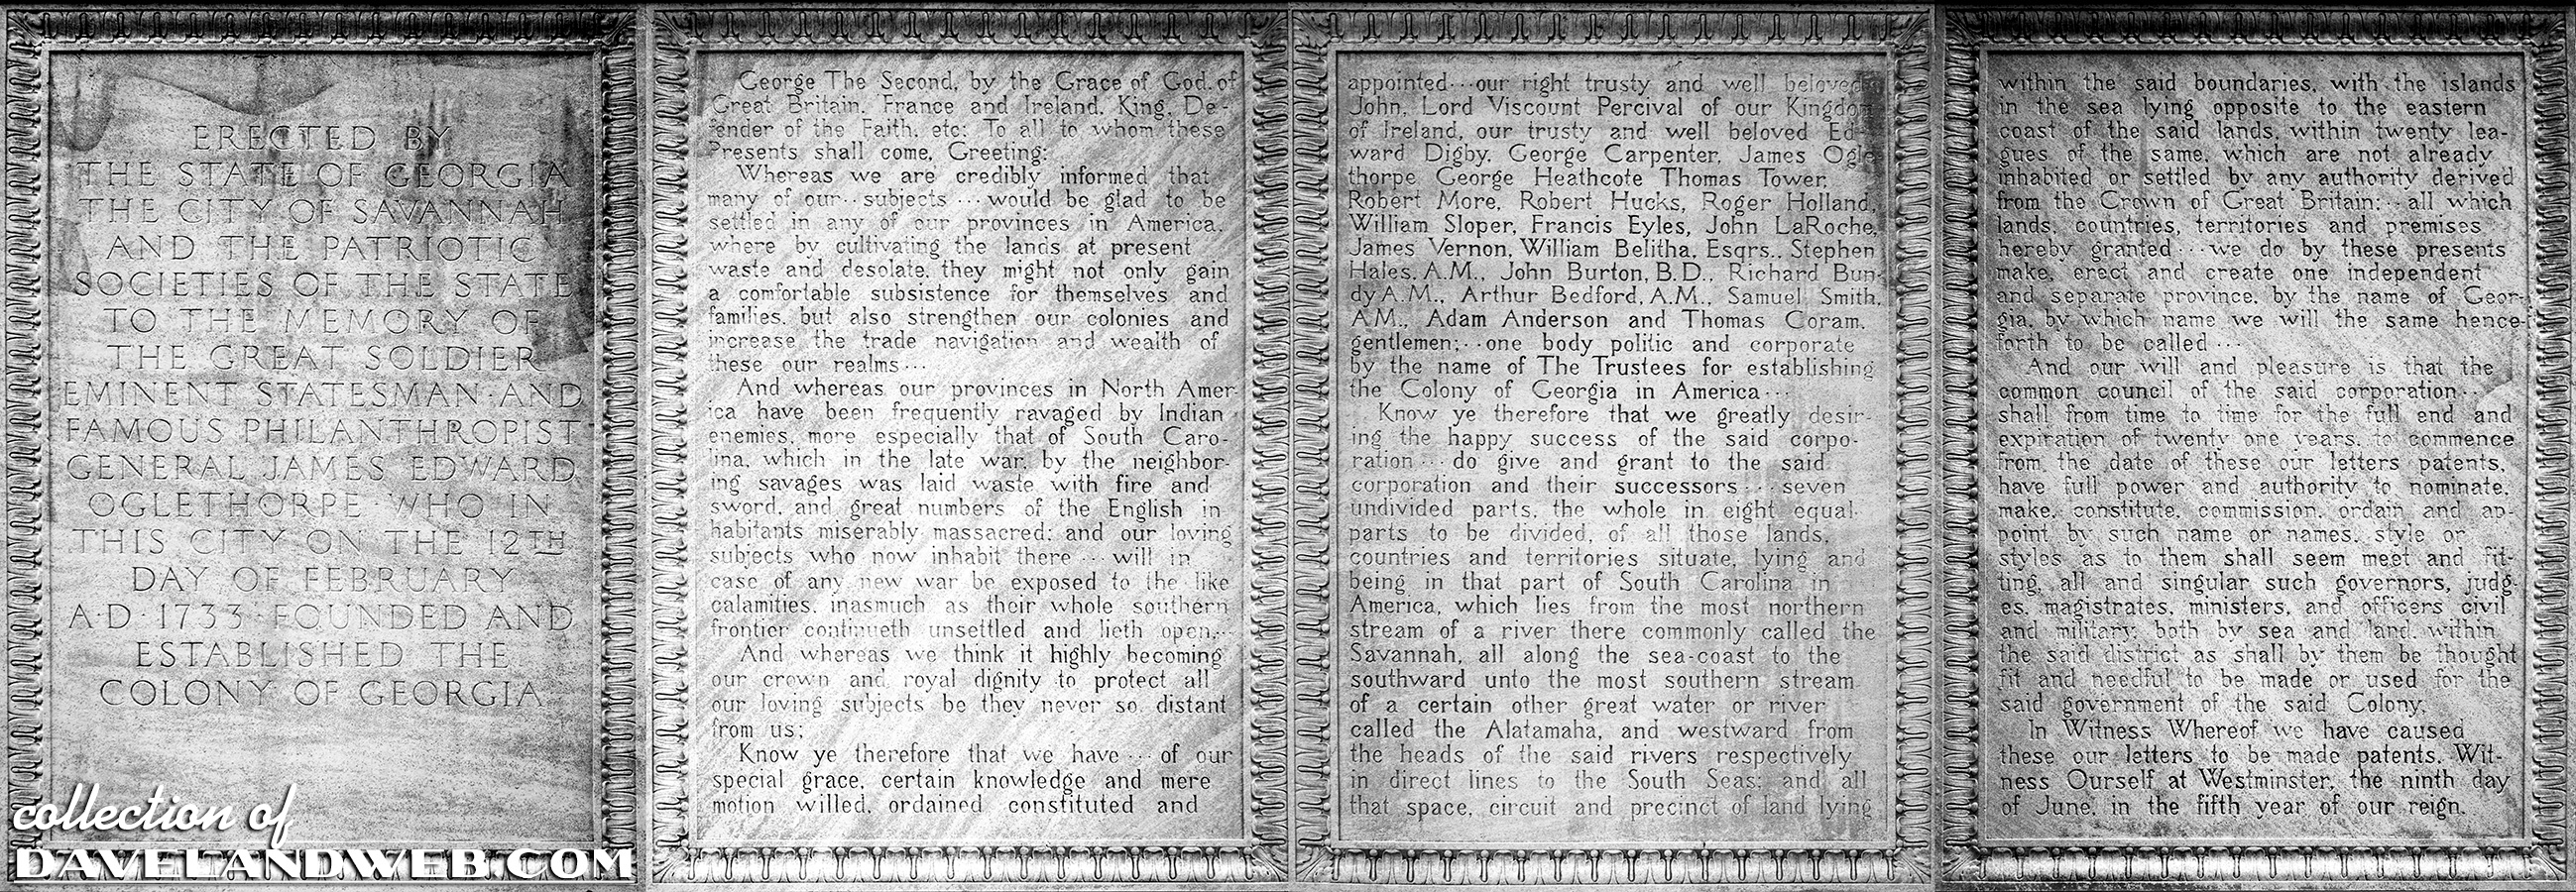 ERECTED BY
THE STATE OF GEORGIA
THE CITY OF SAVANNAH
AND THE PATRIOTIC
SOCIETIES OF THE STATE
TO THE MEMORY OF
THE GREAT SOLDIER
EMINENT STATESMAN·AND
FAMOUS PHILANTHROPIST
GENERAL JAMES EDWARD
OGLETHORPE·WHO IN
THIS CITY ON THE 12TH
DAY OF FEBRUARY
A·D·1733·FOUNDED AND
ESTABLISHED THE
COLONY OF GEORGIA
George The Second, by the Grace of God, of
Great Britain, France and Ireland, King, De-
fender of the Faith, etc: To all to whom these
Presents shall come, Greeting:
Whereas we are credibly informed that
many of our··subjects···would be glad to be
settled in any of our provinces in America,
where by cultivating the lands at present
waste and desolate, they might not only gain
a comfortable subsistence for themselves and
families, but also strengthen our colonies and
increase the trade navigation and wealth of
these our realms···
And whereas our provinces in North Amer-
ica have been frequently ravaged by Indian
enemies, more especially that of South Caro-
lina, which in the late war, by the neighbor-
ing savages was laid waste with fire and
sword, and great numbers of the English in
habitants miserably massacred; and our loving
subjects who now inhabit there···will in
case of any new war be exposed to the like
calamities, inasmuch as their whole southern
frontier continueth unsettled and lieth open,···
And whereas we think it highly becoming
our crown and royal dignity to protect all
our loving subjects be they never so distant
from us;
Know ye therefore that we have···of our
special grace, certain knowledge and mere
motion willed, ordained constituted and
appointed···our right trusty and well beloved
John, Lord Viscount Percival of our Kingdom
of Ireland, our trusty and well beloved Ed-
ward Digby, George Carpenter, James Ogle
thorpe George Heathcote Thomas Tower,
Robert More, Robert Hucks, Roger Holland,
William Sloper, Francis Eyles, John LaRoche,
James Vernon, William Belitha, Esqrs., Stephen
Hales, A.M., John Burton, B.D., Richard Bun-
dy A.M., Arthur Bedford, A.M., Samuel Smith,
A.M., Adam Anderson and Thomas Coram,
gentlemen;··one body politic and corporate
by the name of The Trustees for establishing
the Colony of Georgia in America···
Know ye therefore that we greatly desir-
ing the happy success of the said corpo-
ration···do give and grant to the said
corporation and their successors···seven
undivided parts, the whole in eight equal
parts to be divided, of all those lands,
countries and territories situate, lying and
being in that part of South Carolina in
America, which lies from the most northern
stream of a river there commonly called the
Savannah, all along the sea-coast to the
southward unto the most southern stream
of a certain other great water or river
called the Alatamaha, and westward from
the heads of the said rivers respectively
in direct lines to the South Seas; and all
that space, circuit and precinct of land lying
within the said boundaries, with the islands
in the sea lying opposite to the eastern
coast of the said lands, within twenty lea-
gues of the same, which are not already
inhabited or settled by any authority derived
from the Crown of Great Britain;··all which
lands, countries, territories and premises
hereby granted···we do by these presents
make, erect and create one independent
and separate province, by the name of Geor-
gia, by which name we will the same hence-
forth to be called···
And our will and pleasure is that the
common council of the said corporation···
shall from time to time for the full end and
expiration of twenty one years, to commence
from the date of these our letters patents,
have full power and authority to nominate,
make, constitute, commission, ordain and ap-
point by such name or names, style or
styles as to them shall seem meet and fit-
ting, all and singular such governors, judg-
es, magistrates, ministers, and officers civil
and military; both by sea and land, within
the said district as shall by them be thought
fit and needful to be made or used for the
said government of the said Colony,
In Witness Whereof we have caused
these our letters to be made patents, Wit-
ness Ourself at Westminster, the ninth day
of June, in the fifth year of our reign.
collection of
DAVELANDWEB.COM